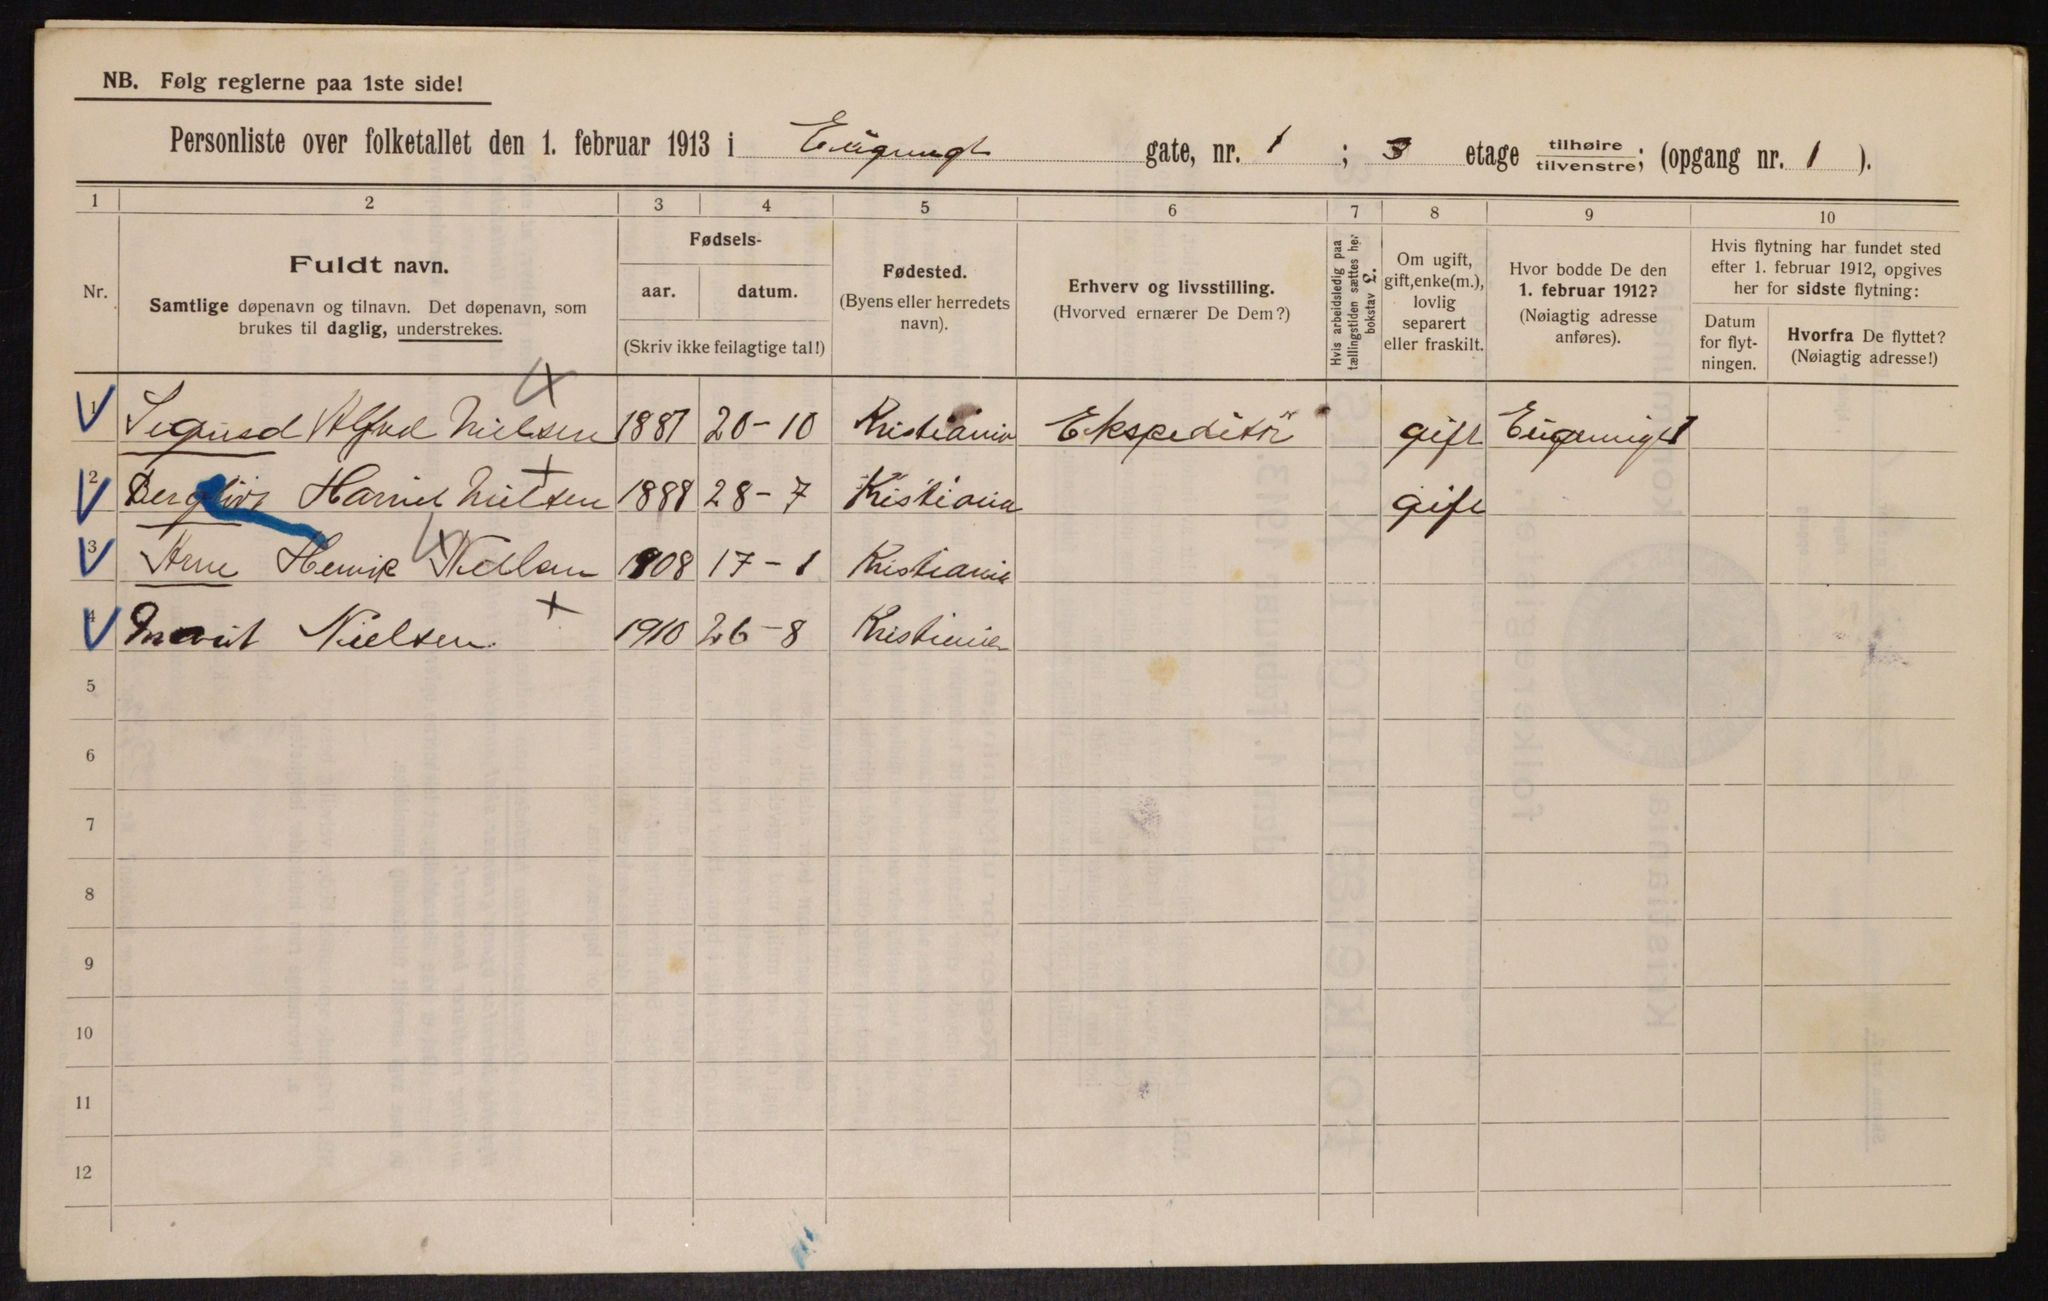 NB. Følg reglerne paa 1ste side!
Personliste over folketallet den 1. februar 1913 i Eugeniegt gate, nr. 1 ; 3 etage tilhøire tilvenstre; (opgang nr. 1 ).
1 2 3 4 5 6 7 8 9 10
Nr.
Fuldt navn.
Samtlige døpenavn og tilnavn. Det døpenavn, som
brukes til daglig, understrekes.
Fødsels-
aar. datum.
(Skriv ikke feilagtige tal!)
Fødested.
(Byens eller herredets
navn).
Erhverv og livsstilling.
(Hvorved ernærer De Dem?)
Hvis arbeidsledig paa
tællingstiden sættes her
bokstav L.
Om ugift,
gift, enke(m.),
lovlig
separert
eller fraskilt.
Hvor bodde De den
1. februar 1912?
(Nøiagtig adresse
anføres).
Hvis flytning har fundet sted
efter 1. februar 1912, opgives
her for sidste flytning:
Datum
for flyt-
ningen.
Hvorfra De flyttet?
(Nøiagtig adresse!)
1 Sigurd Alfred Nielsen 1887 20-10 Kristiania Ekspeditör gift Eugeniegt 1
2 Bergliot Harriet Nielsen 1888 28-7 Kristiania gift
3 Arne Henrik Nielsen 1908 17-1 Kristiania
4 Nielsen 1910 26-8 Kristiania
5
6
7
8
9
10
11
12